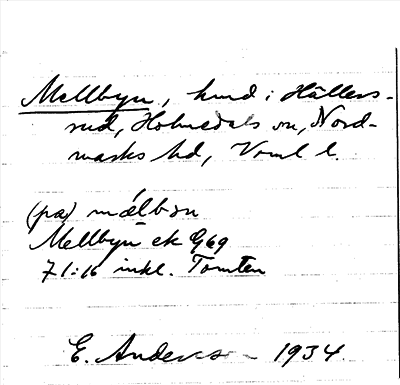 Mellbyn, hmd i Hällers-
rud, Holmedals sn, Nord-
marks hd, Vrml l.
(på) mælbyn
Mellbyn ek G69
71:16 inkl. Tomten
E. Anderson 1934.